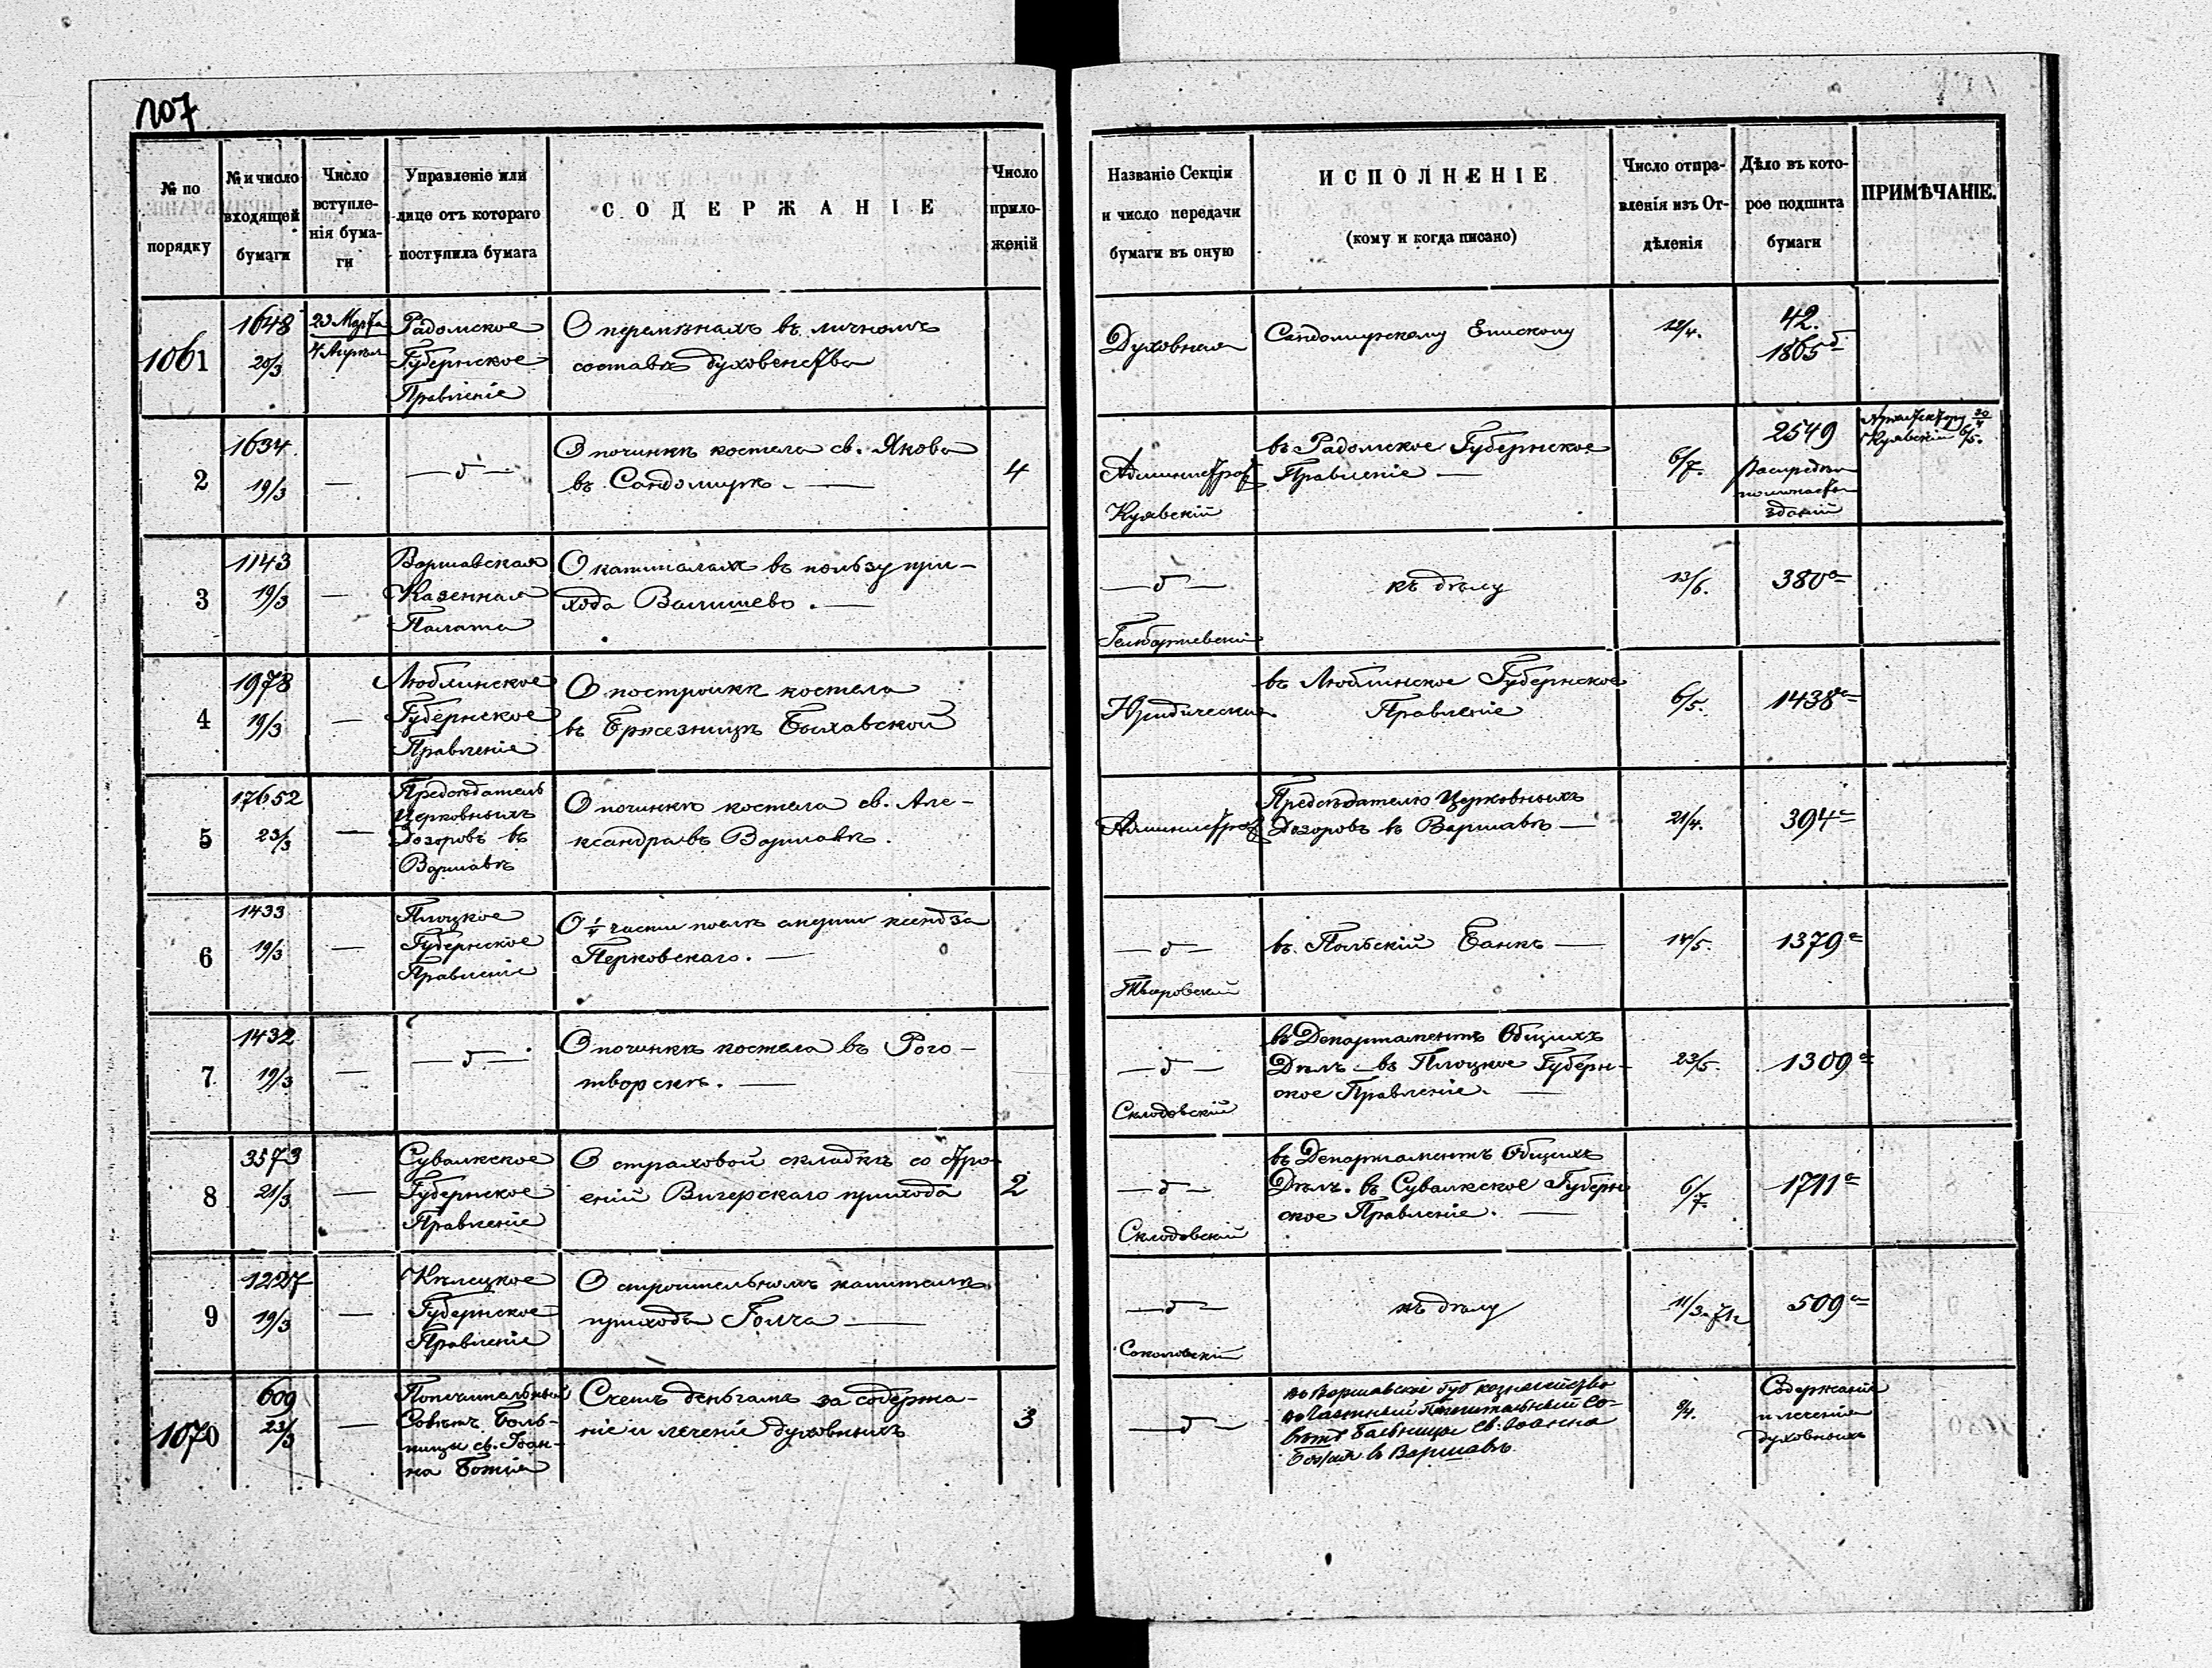 107
№ по порядку
№ и число входящей бумаги
Число вступле-нія бума-ги
Управленіе или лице отъ котораго поступила бумага
СОДЕРЖАНІЕ
Число прило-женій
Названіе Секціи и число передачи бумаги въ оную
ИСПОЛНЕНІЕ
(кому и когда писано)
Число отпра-вленія изъ От-дѣленія
Дѣло въ кото-рое подшита бумаги
ПРИМѢЧАНІЕ.
1061
1648
20/3
23 Марта
4 Апрѣля
Радомское
Губернское
Правленіе
О перемѣнахъ въ личномъ
составѣ духовенства
Духовная
Сандомирскому Епископу
12/4.
42.
1865
2
1634
19/3
—
— д —
О починкѣ костела св. Якова
въ Сандомирѣ. —
4
Администрат
Куявскій
въ Радомское Губернское
Правленіе —
6/7.
2549
зданій
Архитектору 30/4
Куявскій 6/5.
3
1143
19/3
—
Варшавская
Казенная
Палата
О капиталахъ въ пользу при-
хода Валишево. —
— д —
къ дѣлу
13/6.
380а
4
1978
19/3
—
Люблинское
Губернское
Правленіе
О постройкѣ костела
въ Бржезницѣ Быхавской
Юридическая
въ Люблинское Губернское
Правленіе
6/5.
1438а
5
17652
23/3
—
Предсѣдатель
Церковныхъ
Дозоровъ въ
Варшавѣ
О починкѣ костела св. Але-
ксандра въ Варшавѣ.
Администрат
Предсѣдателю Церковныхъ
Дозоровъ въ Варшавѣ —
21/4.
394а
6
1433
19/3
—
Плоцкое
Губернское
Правленіе
О ¼ части послѣ смерти ксендза
Перковскаго. —
— д —
въ Польскій Банкъ —
14/5.
1379а
7
1432
19/3
—
— д —
О починкѣ костела въ Рого-
творскѣ. —
— д —
Склодовскій
въ Департаментъ Общихъ
Дѣлъ — въ Плоцкое Губерн-
ское Правленіе. —
23/5.
1309а
8
3573
21/3
—
Сувалкское
Губернское
Правленіе
О страховой складкѣ со стро-
еній Вигерскаго прихода
2
— д —
Склодовскій
въ Департаментъ Общихъ
Дѣлъ. въ Сувалкское Губерн
ское Правленіе. —
6/7.
1711а
9
1227
19/3
—
Кѣлецкое
Губернское
Правленіе
О строительномъ капиталѣ
прихода Голча —
— д —
Соколовскій
къ дѣлу
11/3 71г
509а
1070
609
23/3
—
Попечительный
Совѣтъ Боль-
ницы св. Іоан-
на Божія
Счетъ деньгамъ за содержа-
ніе и леченіе духовныхъ
3
— д —
въ Варшавское губ казначейство
въ Частный Попечительный Со-
вѣтъ Больницы Св. Іоанна
Божія въ Варшавѣ
9/4.
Содержаніе
и леченіе
духовныхъ